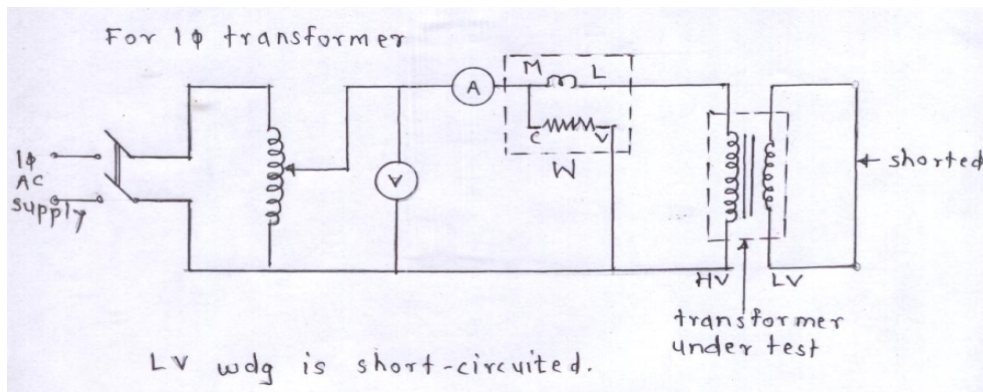 For 1φ transformer
M L
A
C V
W
1φ
AC
supply
V
shorted
HV LV
transformer
under test
LV wdg is short-circuited.